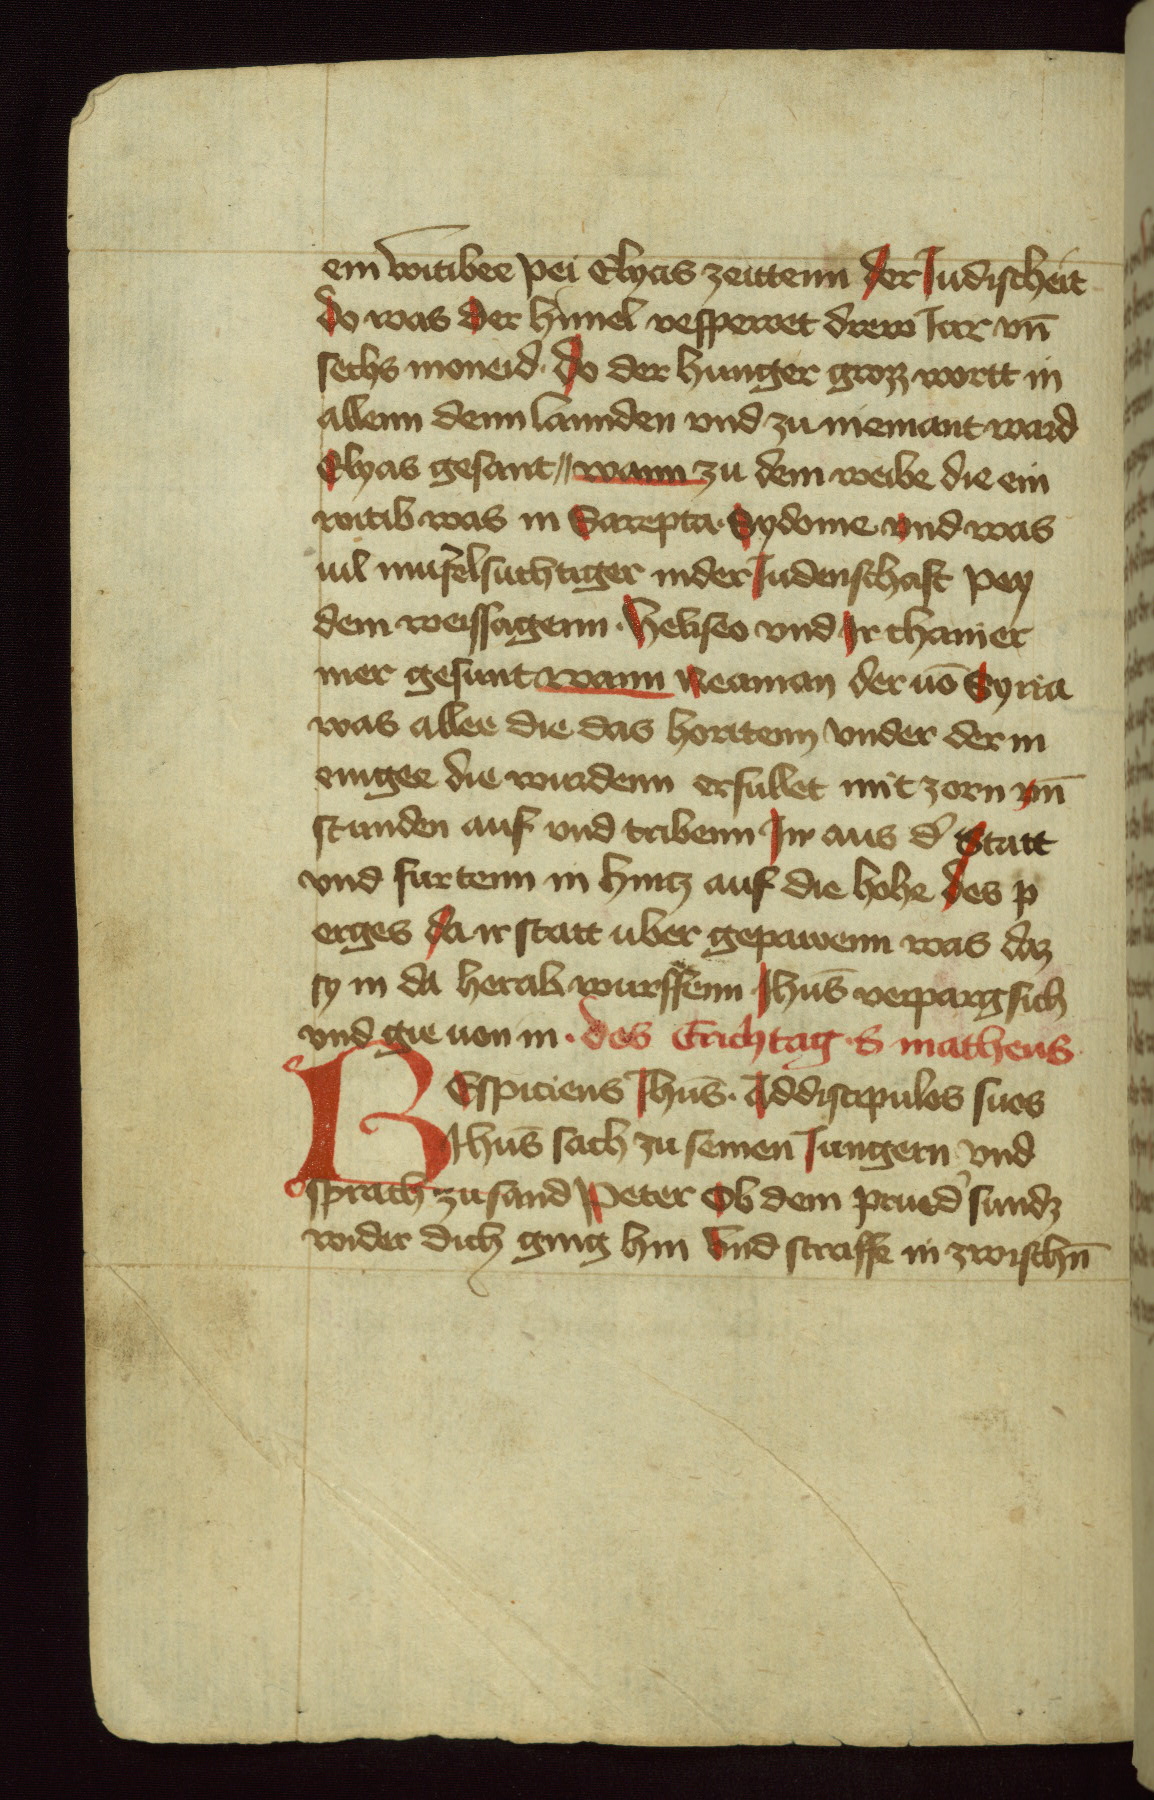 ein witibee pei Elyas zeittenn der Judischeit
do was der himel vesperret drew Jar vn̄
sechs moneid. do der hunger grozz wortt in
allenn denn lannden vnd zu niemant ward
Elyas gesant // wann zu dem weibe die ein
witib was in Sarepta. Sydome vnd was
uil muselsuchtiger in der Judenschaft pey
dem weissagenn. heliseo vnd Jr chainer
mer gesunt wann Neaman der uō Syria
was allee die das hortenn vnder der in
enigee die wurdenn erfullet mit zorn vn̄
stunden auf vnd tribenn Jn aus d' Statt
vnd furtenn in hintz auf die hohe des p
erges da ir statt uber gepawenn was daz
sy in da herab wurffenn Jhus̄ verpargsich
vnd gie uon in. des Erichtag S matheus
REspiciens Jhus̄. Addiscipulos suos
Jhus̄ sach zu seinen Jungern vnd
sprach zu sand Peter Ob dem prued' sundz
wider dich ging hin Vnd straffe in zwischn̄